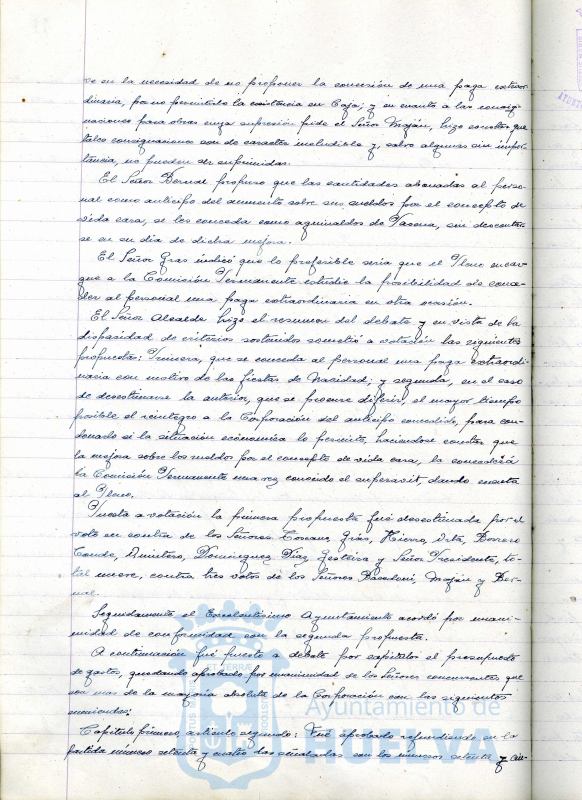 ve en la necesidad de no proponer la concesión de una paga extraor-
dinaria, por no permitirlo la existencia en Caja; y en cuanto a las consig-
naciones para obras cuya supresión pide el Señor Maján, hizo constar que
tales consignaciones son de carácter ineludible y, salvo algunas sin impor-
tancia, no pueden ser suprimidas.
El Señor Bernal propuso que las cantidades abonadas al perso-
nal como anticipo del aumento sobre sus sueldos por el concepto de
vida cara, se les conceda como aguinaldos de Pascua, sin descontar-
se en su día de dicha mejora.
El Señor Gras indicó que lo preferible sería que el Pleno encar-
gue a la Comisión Permanente estudie la posibilidad de conce-
der al personal una paga extraordinaria en otra ocasión.
El Señor Alcalde hizo el resumen del debate y en vista de la
disparidad de criterios sostenidos sometió a votación las siguientes
propuestas: Primera, que se conceda al personal una paga extraordi-
naria con motivo de las fiestas de Navidad; y segunda, en el caso
de desestimarse la anterior, que se procure diferir, el mayor tiempo
posible el reintegro a la Corporación del anticipo concedido, para con-
donarlo si la situación económica lo permite, haciéndose constar que
la mejora sobre los sueldos por el concepto de vida cara, la concederá
la Comisión Permanente una vez conocido el superavit, dando cuenta
al Pleno.
Puesta a votación la primera propuesta fué desestimada por el
voto en contra de los Señores Gras, Hierro, Borrero
Conde, Quintero, Domínguez Díaz, Gesteira y Señor Presidente, to-
tal nueve, contra tres votos de los Señores Maján y Ber-
nal.
Seguidamente el Excelentísimo Ayuntamiento acordó por unani-
midad de conformidad con la segunda propuesta.
A continuación fué puesto a debate por capítulos el presupuesto
de gastos, quedando aprobado por unanimidad de los Señores concurrentes que
son mas de la mayoría absoluta de la Corporación con las siguientes
enmiendas:
Capítulo primero, artículo segundo: Fué aprobado refundiendo en la
partida número setenta y cuatro las señaladas con los números setenta y cin-
Ayuntamiento de
HUELVA